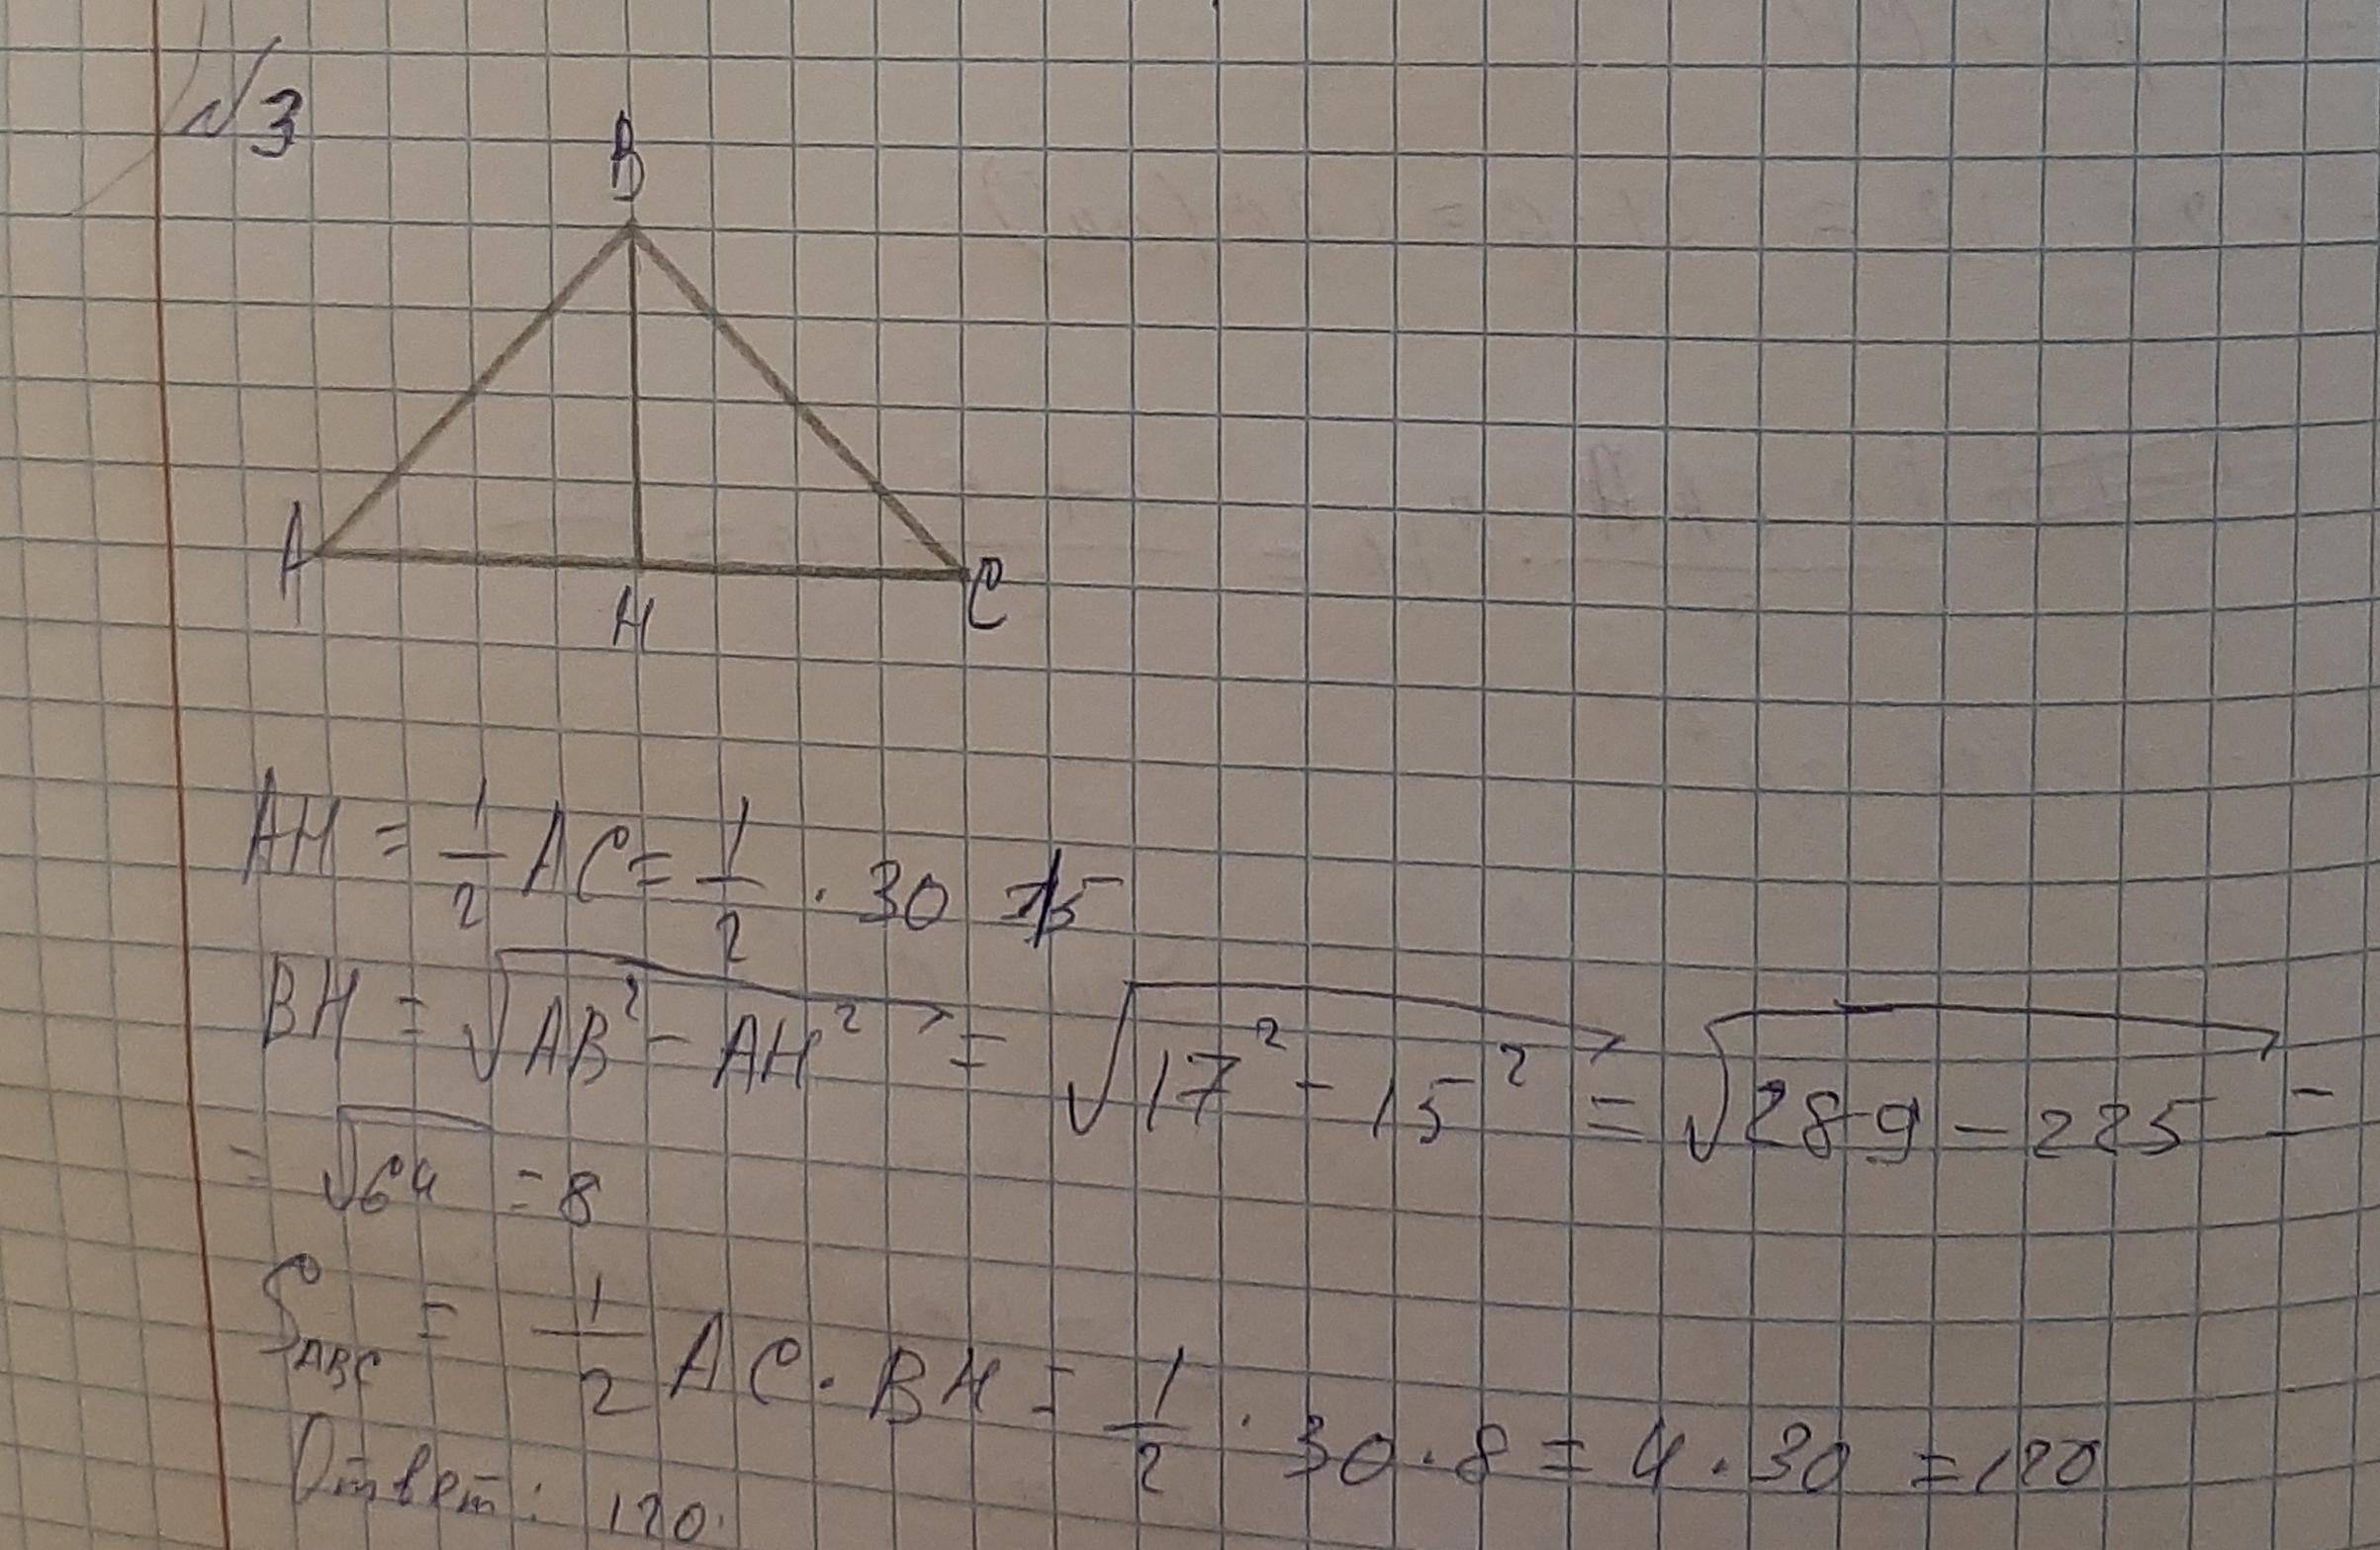 №3
B
A
H
C
AH = 1/2 AC = 1/2 · 30 = 15
BH = √(AB² - AH²) = √(17² - 15²) = √(289 - 225) =
= √64 = 8
S_ABC = 1/2 AC · BH = 1/2 · 30 · 8 = 4 · 30 = 120
Ответ: 120.